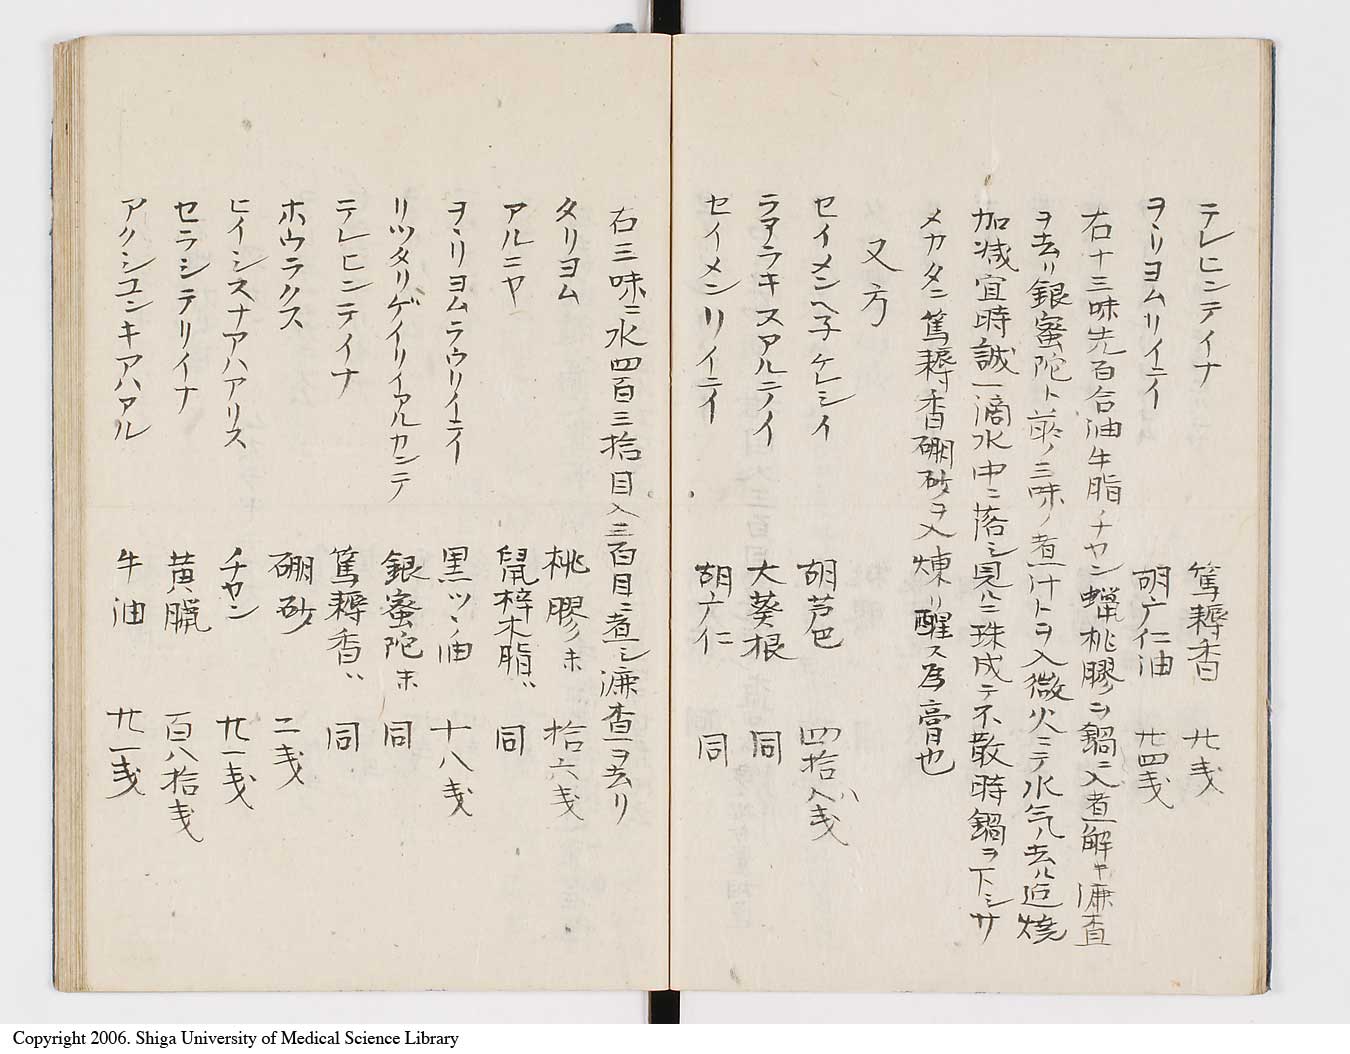 テレヒンテイナ 篤耨香 廿戔
ヲヽリヨムリイニイ 胡广仁油 廿四戔
右十三味先百合油牛脂ノチヤン蝋桃膠ヲ鍋ニ入煮解キ漉査
ヲ去リ銀蜜陀ト前ノ三味ノ煮汁トヲ入微火ニテ水気ノ去ル迠焼
加减宜時誠一滴水中ニ落シ見ルニ珠成テ不散時鍋ヲ下シサ
メカタニ篤耨香硼砂ヲ入煉リ醒ス為膏也
又方
セイメンヘ子ケレシイ 胡芦巴 四拾八戔
ラアラキスアルテイ 大葵根 同
セイメンリイニイ 胡广仁 同
右三味ニ水四百三拾目入三百目ニ煮シ漉査ヲ去リ
タリヨム 桃膠ノ末 拾六戔
アルニヤ 鼠梓木脂〻 同
ヲヽリヨムラウリイニイ 黒ツヽ油 十八戔
リツタリゲイリイアルカンテ 銀蜜陀末 同
テレヒンテイナ 篤耨香〻 同
ホウラクス 硼砂 二戔
ヒイシスナアハアリス チヤン 廿一戔
セラシテリイナ 黄臘 百八拾戔
アクシユンキアハアル 牛油 廿一戔
Copyright 2006. Shiga University of Medical Science Library